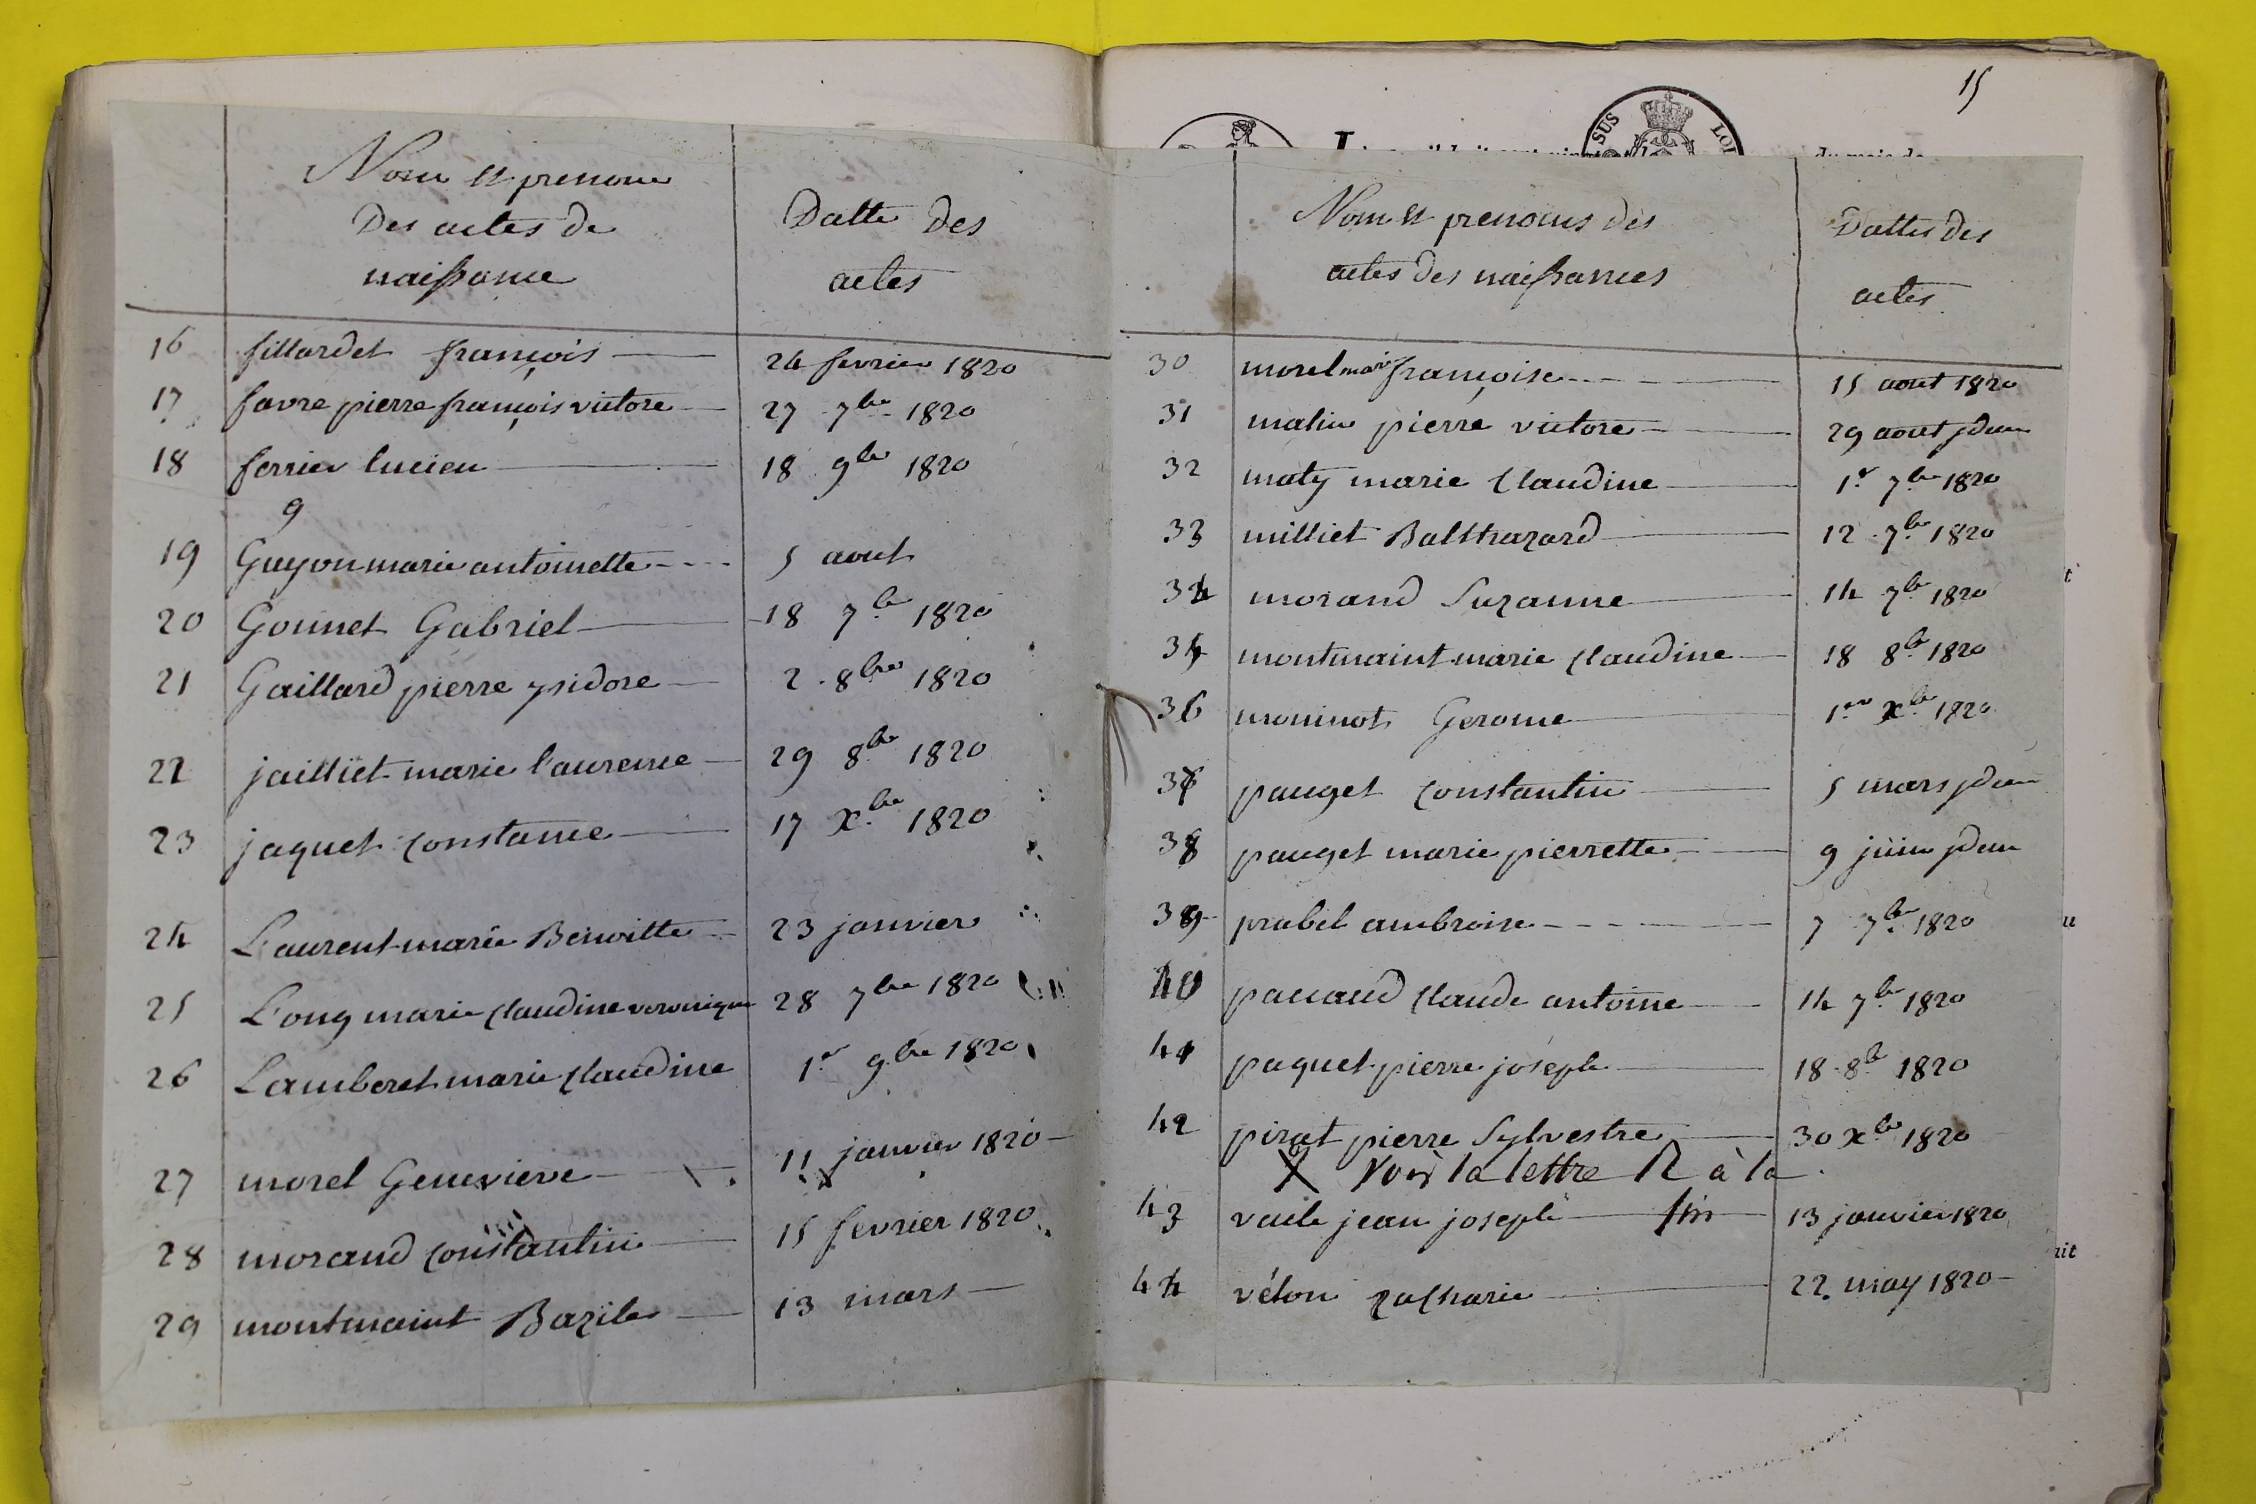 Nom et prenom
Des actes de
naissance
Datte des
actes
16 fillardet françois 24 fevrier 1820
17 favre pierre françois victore 27 7bre 1820
18 ferrier lucien 18 9bre 1820
g
19 Guyon marie antoinette 5 aout
20 Gonnet Gabriel 18 7bre 1820
21 Gaillard pierre ysidore 2 8bre 1820
22 jailliet marie laurence 29 8bre 1820
23 jaquet constance 17 Xbre 1820
24 Laurent marie Benoitte 23 janvier
25 Long marie claudine veronique 28 7bre 1820
26 Lamberet marie claudine 1er 9bre 1820
27 morel Genevieve 11 janvier 1820
28 morand constantin 15 fevrier 1820
29 montmaint Bazile 13 mars
15
SUS LOI
Nom et prenoms des
actes des naissances
Dattes des
actes
30 morel marie françoise 15 aout 1820
31 matin pierre victore 29 aout jdem
32 maty marie claudine 1er 7bre 1820
33 milliet Balthazard 12 7bre 1820
34 morand Suzanne 14 7bre 1820
35 montmaint marie claudine 18 8bre 1820
36 moninot Gerome 1er Xbre 1820
37 pauget constantin 5 mars jdem
38 pauget marie pierrette 9 juin jdem
39 prabel ambroise 7 7bre 1820
40 pacaud claude antoine 14 7bre 1820
41 paquet pierre joseph 18 8bre 1820
42 pirat pierre Sylvestre 30 Xbre 1820
X voir la lettre R à la
43 vaile jean joseph fin 13 janvier 1820
44 véton zacharie 22 may 1820